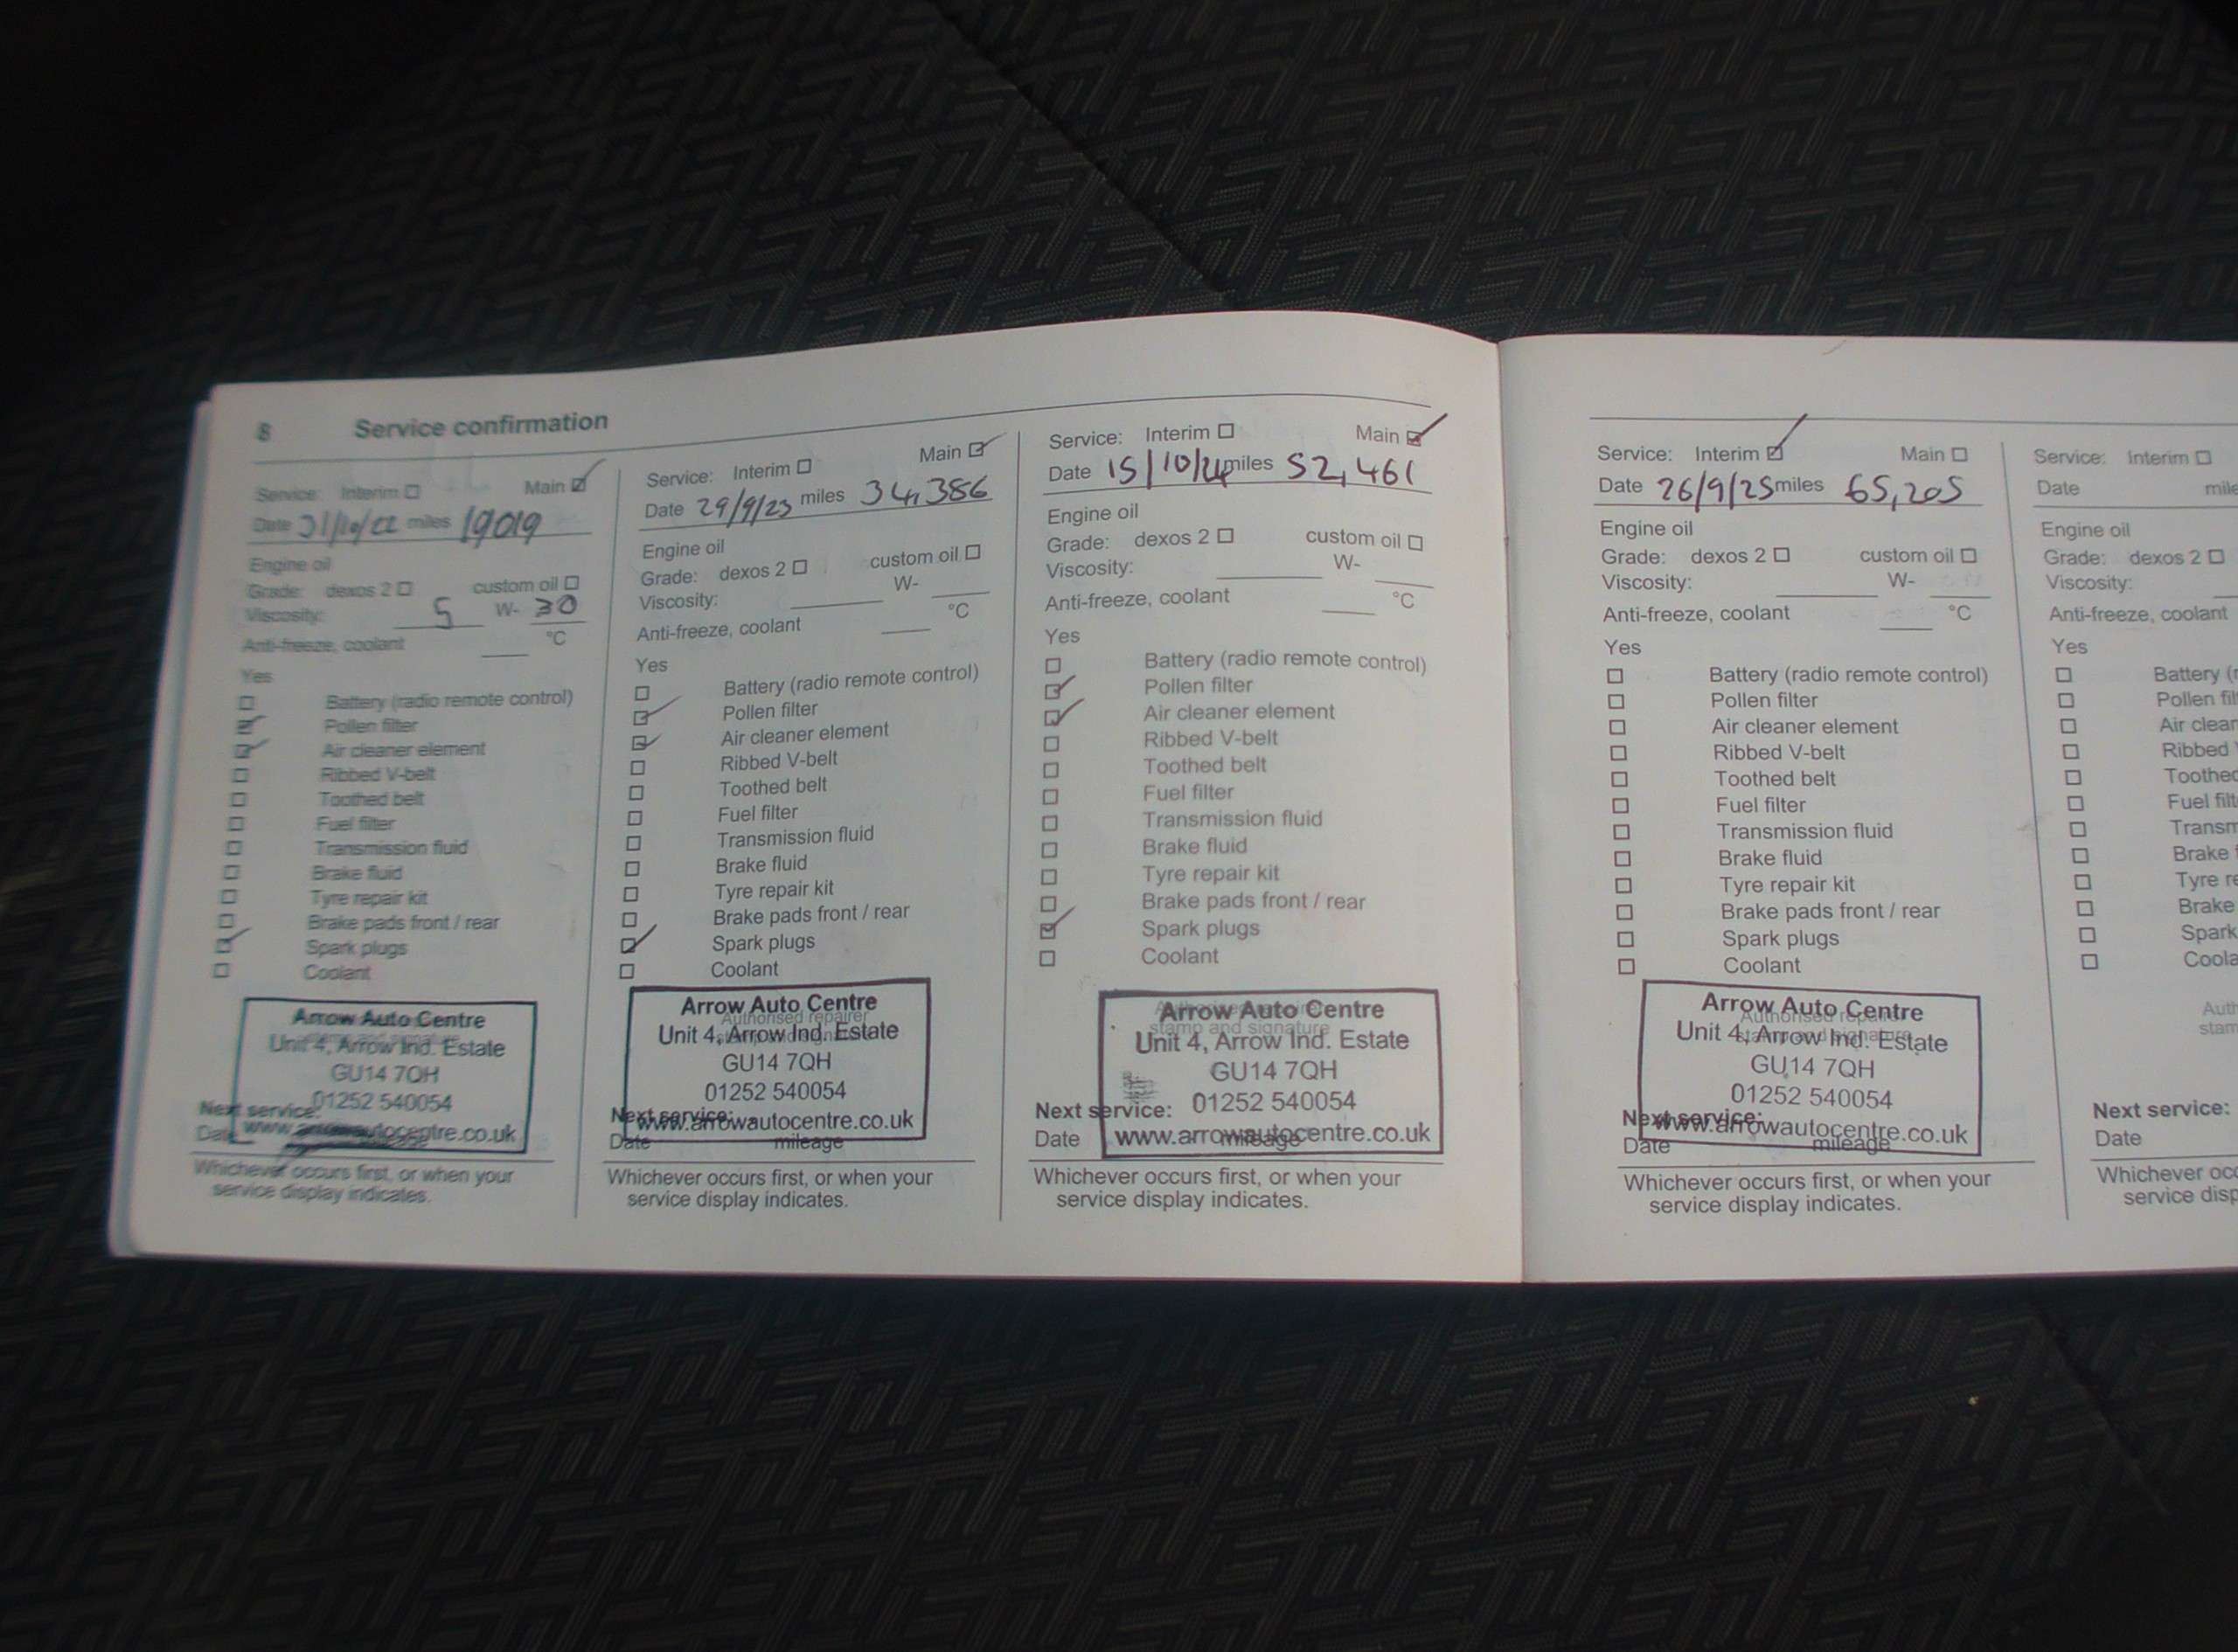 8 Service confirmation
Service: Interim ☐ Main ☑
Date 31/10/22 miles 19019
Engine oil
Grade: dexos 2 ☐ custom oil ☐
Viscosity: 5 W- 30
Anti-freeze, coolant °C
Yes
☐ Battery (radio remote control)
☑ Pollen filter
☑ Air cleaner element
☐ Ribbed V-belt
☐ Toothed belt
☐ Fuel filter
☐ Transmission fluid
☐ Brake fluid
☐ Tyre repair kit
☐ Brake pads front / rear
☑ Spark plugs
☐ Coolant
Arrow Auto Centre
Unit 4, Arrow Ind. Estate
GU14 7QH
01252 540054
Next service:
www.arrowautocentre.co.uk
Date
Whichever occurs first, or when your
service display indicates.
Service: Interim ☐ Main ☑
Date 29/9/23 miles 34,386
Engine oil
Grade: dexos 2 ☐ custom oil ☐
Viscosity: W-
Anti-freeze, coolant °C
Yes
☐ Battery (radio remote control)
☑ Pollen filter
☑ Air cleaner element
☐ Ribbed V-belt
☐ Toothed belt
☐ Fuel filter
☐ Transmission fluid
☐ Brake fluid
☐ Tyre repair kit
☐ Brake pads front / rear
☑ Spark plugs
☐ Coolant
Arrow Auto Centre
Authorised repairer
Unit 4, Arrow Ind. Estate
GU14 7QH
01252 540054
Next service:
www.arrowautocentre.co.uk
Date mileage
Whichever occurs first, or when your
service display indicates.
Service: Interim ☐ Main ☑
Date 15/10/24 miles 52,461
Engine oil
Grade: dexos 2 ☐ custom oil ☐
Viscosity: W-
Anti-freeze, coolant °C
Yes
☐ Battery (radio remote control)
☑ Pollen filter
☑ Air cleaner element
☐ Ribbed V-belt
☐ Toothed belt
☐ Fuel filter
☐ Transmission fluid
☐ Brake fluid
☐ Tyre repair kit
☐ Brake pads front / rear
☑ Spark plugs
☐ Coolant
Arrow Auto Centre
stamp and signature
Unit 4, Arrow Ind. Estate
GU14 7QH
01252 540054
Next service:
www.arrowautocentre.co.uk
Date mileage
Whichever occurs first, or when your
service display indicates.
Service: Interim ☑ Main ☐
Date 26/9/25 miles 65,205
Engine oil
Grade: dexos 2 ☐ custom oil ☐
Viscosity: W-
Anti-freeze, coolant °C
Yes
☐ Battery (radio remote control)
☐ Pollen filter
☐ Air cleaner element
☐ Ribbed V-belt
☐ Toothed belt
☐ Fuel filter
☐ Transmission fluid
☐ Brake fluid
☐ Tyre repair kit
☐ Brake pads front / rear
☐ Spark plugs
☐ Coolant
Arrow Auto Centre
Unit 4, Arrow Ind. Estate
GU14 7QH
01252 540054
Next service:
www.arrowautocentre.co.uk
Date mileage
Whichever occurs first, or when your
service display indicates.
Service: Interim ☐
Date
Engine oil
Grade: dexos 2 ☐
Viscosity:
Anti-freeze, coolant
Yes
☐ Battery
☐ Pollen
☐ Air
☐ Ribbed
☐
☐ Fuel
☐
☐ Brake
☐ Tyre
☐ Brake
☐ Spark
☐
Next service:
Date
Whichever
service